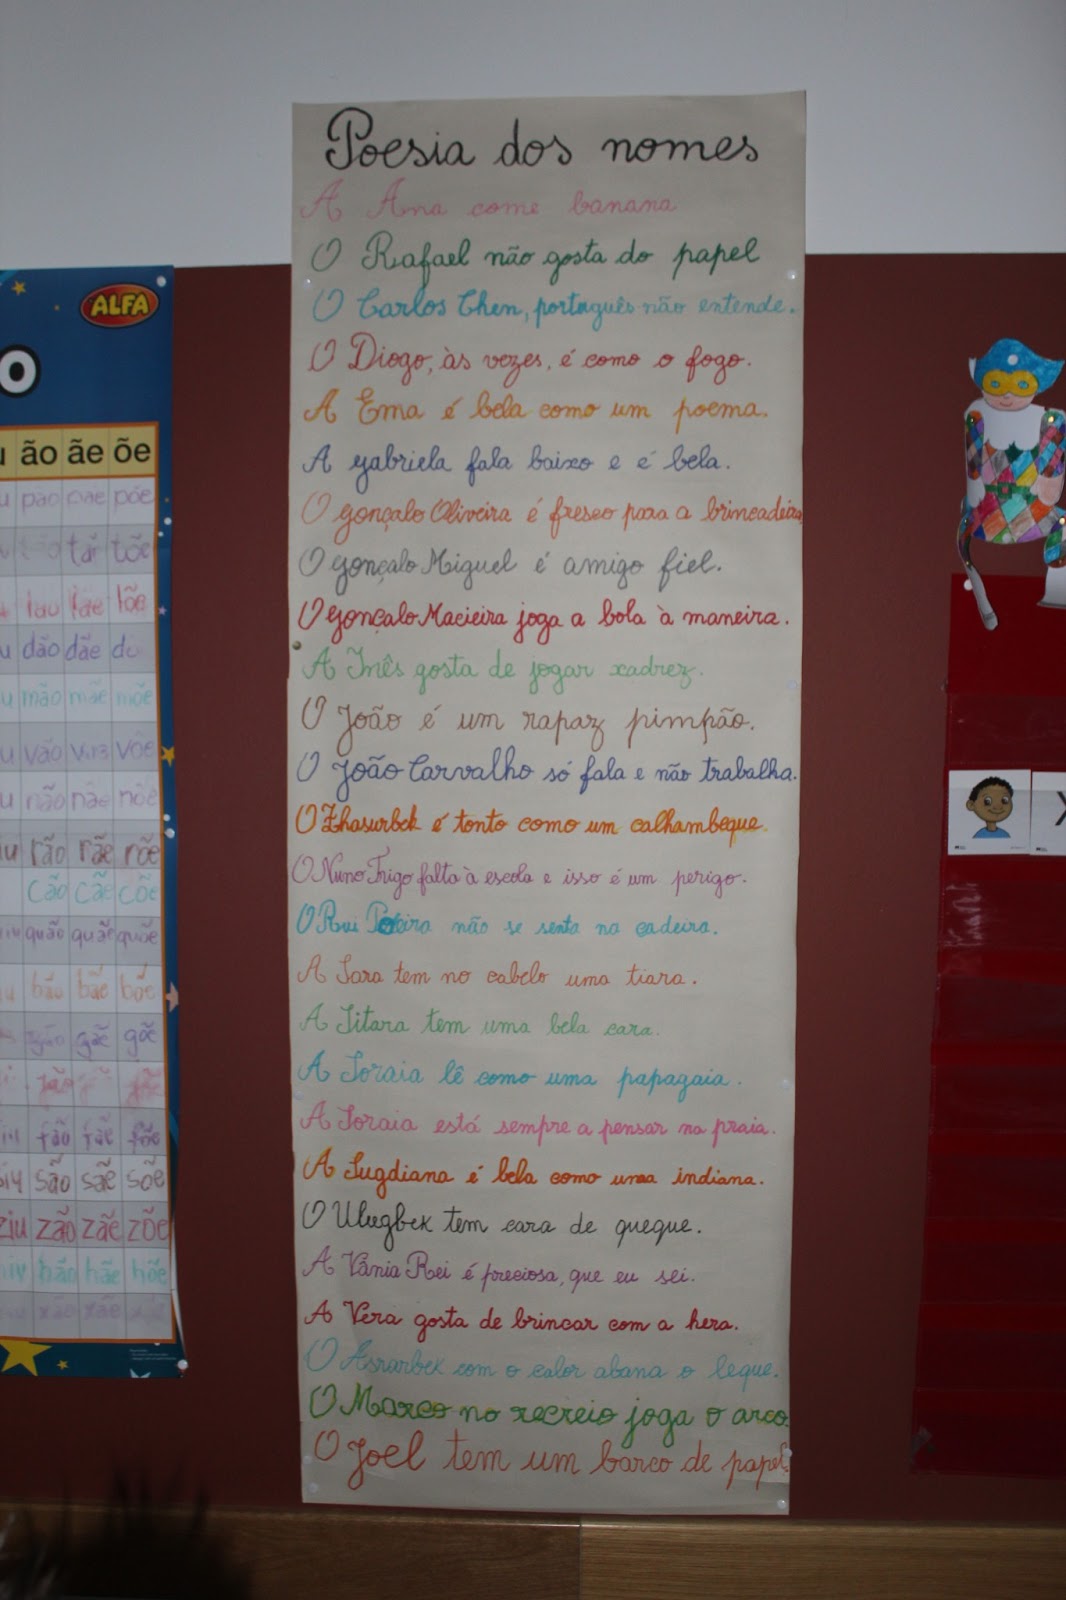 Poesia dos nomes
A Ana come banana
O Rafael não gosta do papel
O Carlos Chen, português não entende.
O Diogo, às vezes, é como o fogo.
A Ema é bela como um poema.
A Gabriela fala baixo e é bela.
O Gonçalo Oliveira é fresco para a brincadeira
O Gonçalo Miguel é amigo fiel.
O Gonçalo Macieira joga a bola à maneira.
A Inês gosta de jogar xadrez.
O João é um rapaz pimpão.
O João Carvalho só fala e não trabalha.
O Zhasurbek é tonto como um calhambeque.
O Nuno Trigo falta à escola e isso é um perigo.
O Rui Pereira não se senta na cadeira.
A Sara tem no cabelo uma tiara.
A Sitara tem uma bela cara.
A Soraia lê como uma papagaia.
A Soraia está sempre a pensar na praia.
A Sugdiana é bela como uma indiana.
O Ulugbek tem cara de queque.
A Vânia Rei é preciosa, que eu sei.
A Vera gosta de brincar com a hera.
O Asrarbek com o calor abana o leque.
O Marco no recreio joga o arco.
O Joel tem um barco de papel.
ALFA
o
u ão ãe õe
u pão põe
tõe
lãe lõe
u dão dãe
u mão mãe mõe
u vão võe
u não nãe nõe
iu rão rãe rõe
cão cãe cõe
quão quãe quõe
bão bãe bõe
gãe gõe
fão fãe fõe
siu são sãe sõe
ziu zão zãe zõe
hão hãe hõe
xão xãe